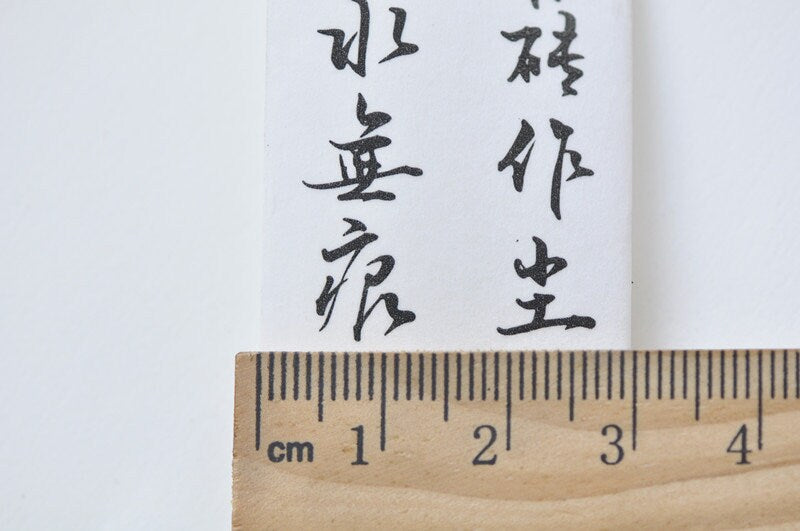 碾作尘
水無痕
cm 1 2 3 4